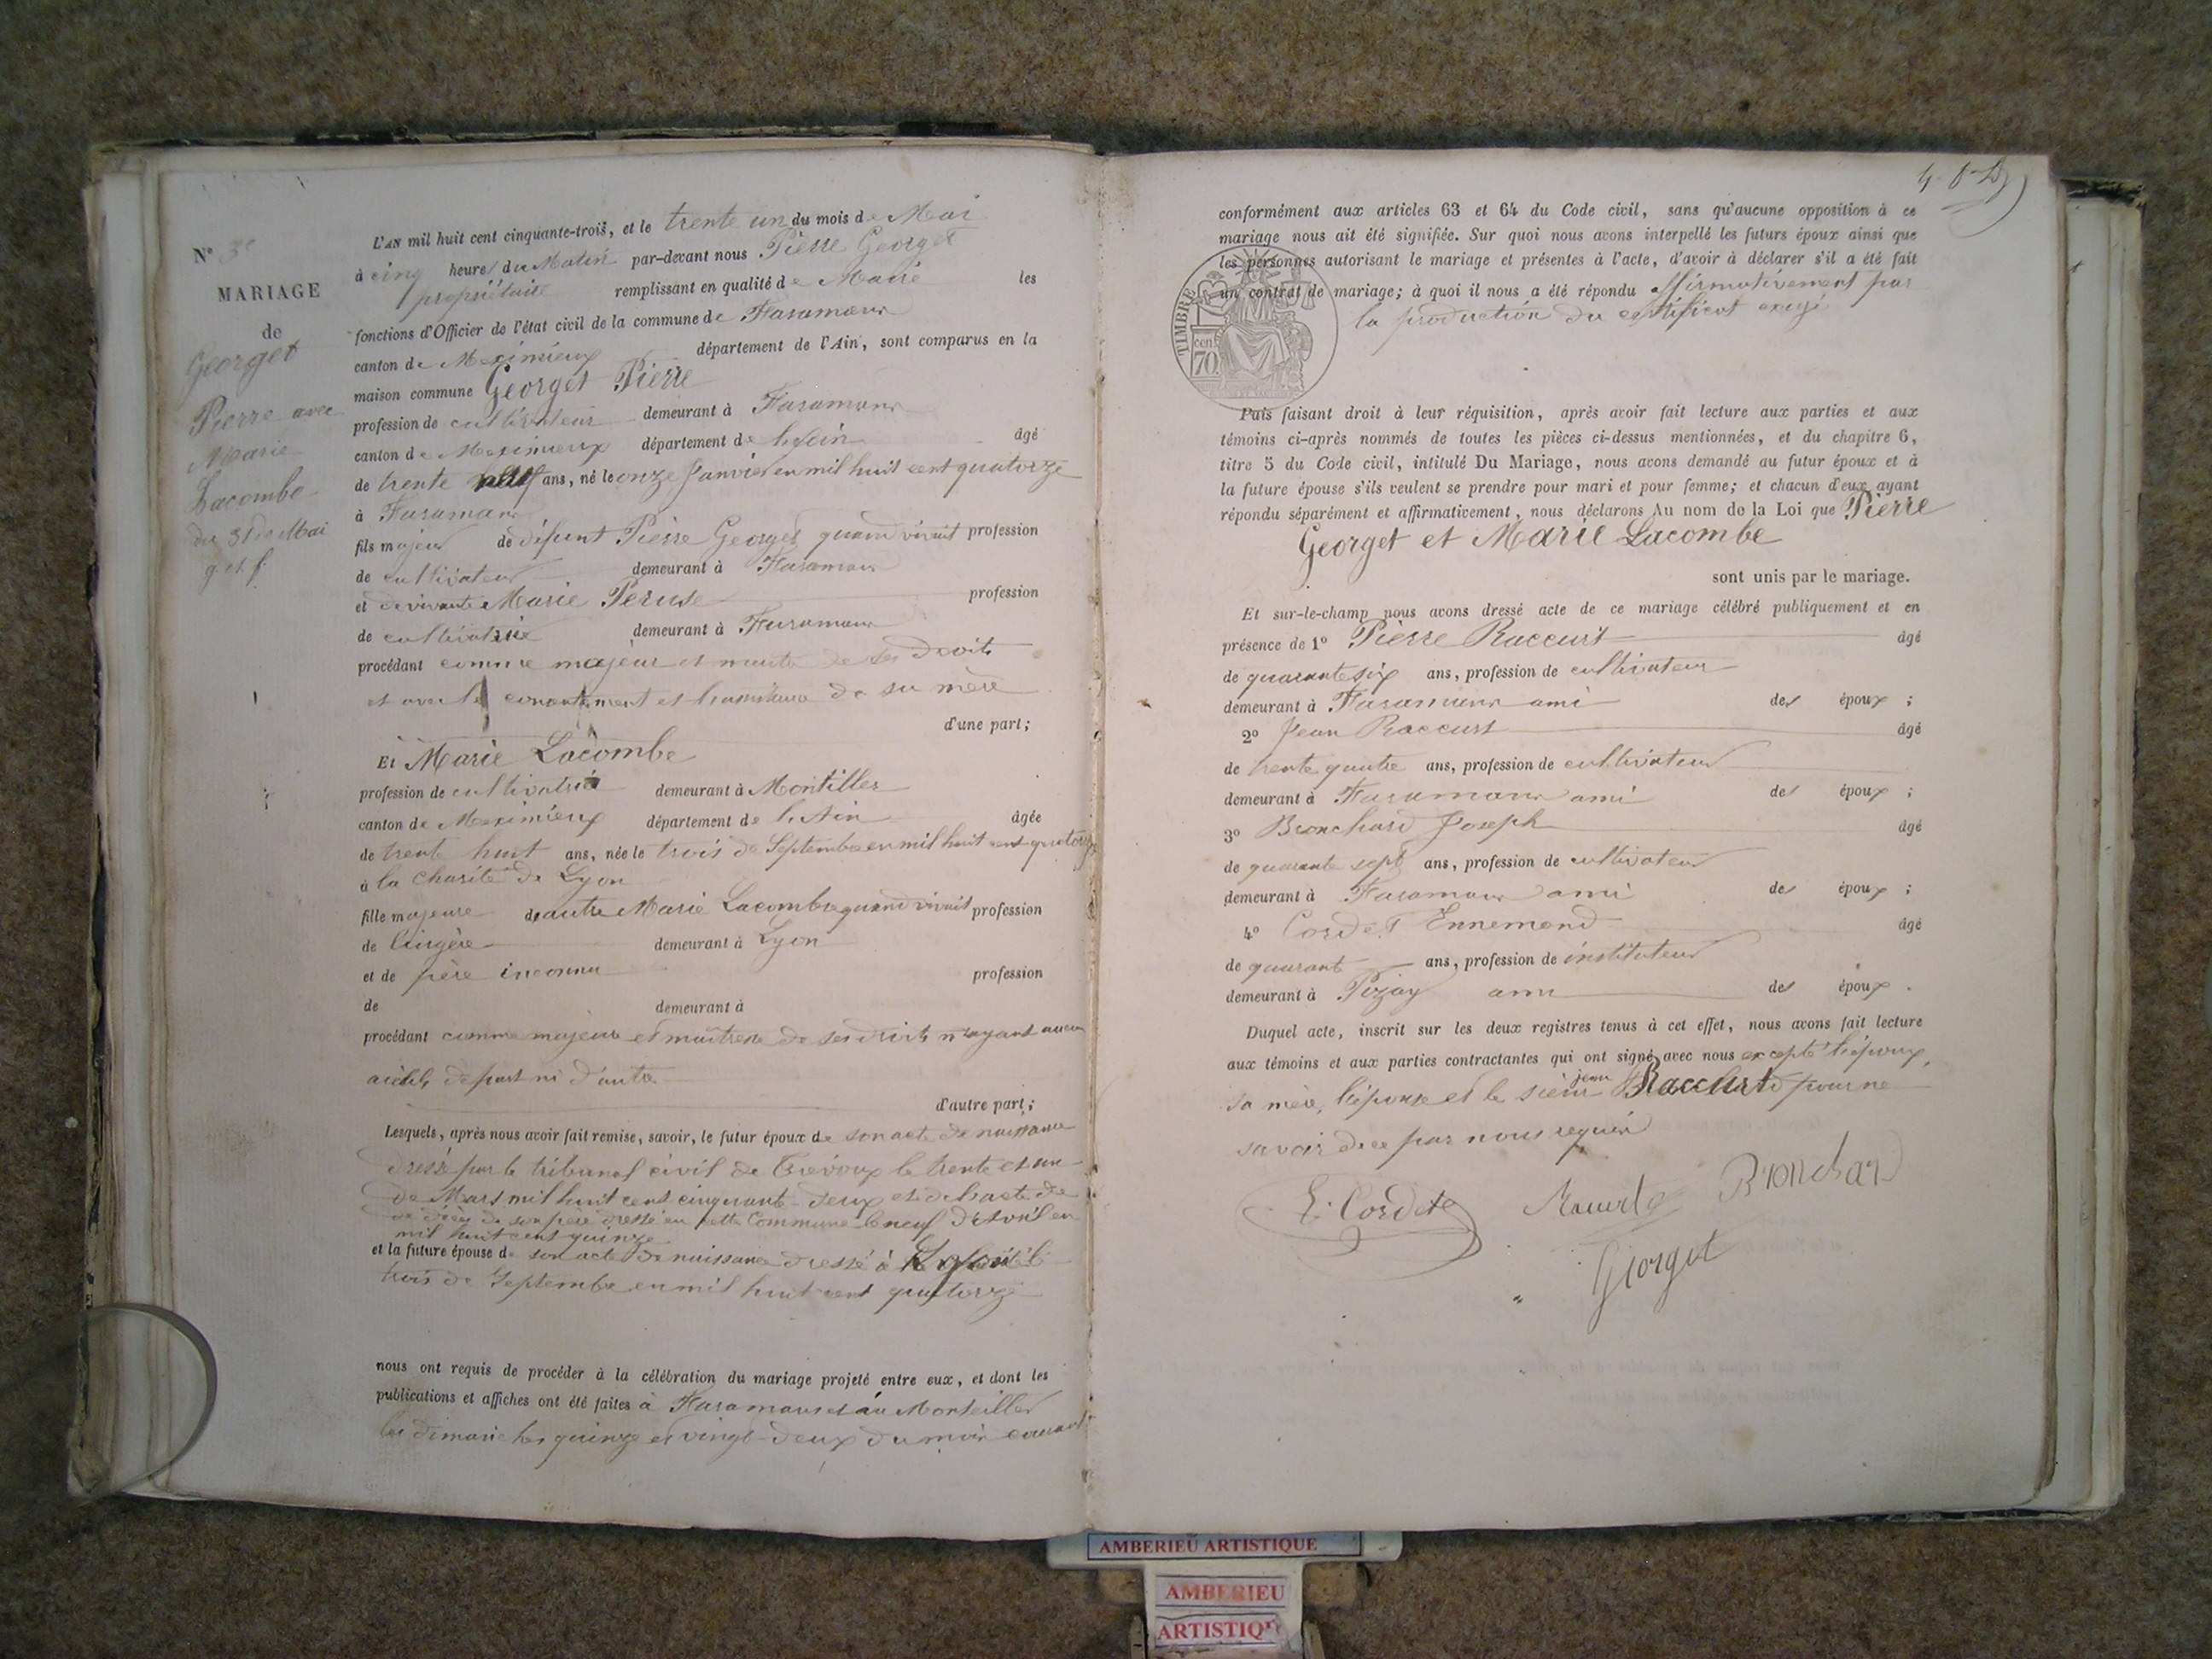 N° 3e
MARIAGE
de
Georget
Pierre avec
Marie
Lacombe
du 31 de Mai
L'AN mil huit cent cinquante-trois, et le trente un du mois de Mai
à cinq heures du Matin par-devant nous Pierre Georget
propriétaire remplissant en qualité de Maire les
fonctions d'Officier de l'état civil de la commune de Faramans
canton de Meximieux département de l'Ain, sont comparus en la
maison commune Georget Pierre
profession de cultivateur demeurant à Faramans
canton de Meximieux département de l'Ain âgé
de trente ans, né le onze Janvier en mil huit cent quatorze
à Faramans
fils majeur de défunt Pierre Georget quand vivait profession
de cultivateur demeurant à Faramans
et de vivante Marie Peruse profession
de cultivatrice demeurant à Faramans
procédant comme majeur et maître de ses droits
et avec le consentement et de sa mère
d'une part;
Et Marie Lacombe
profession de cultivatrice demeurant à Montillier
canton de Meximieux département de l'Ain âgée
de trente huit ans, née le trois de Septembre en mil huit cent quatorze
à la Charité de Lyon
fille majeure d'autre Marie Lacombe quand vivait profession
de lingère demeurant à Lyon
et de père inconnu profession
de demeurant à
procédant comme majeure et maîtresse de ses droits n'ayant aucun
aïeuls de part ni d'autre
d'autre part;
Lesquels, après nous avoir fait remise, savoir, le futur époux de son acte de naissance
dressé par le tribunal civil de Trévoux le trente et un
de Mars mil huit cent cinquante-deux et de l'acte de
de décès de son père dressé en cette Commune le neuf d'Avril en
mil huit cent quinze
et la future épouse de son acte de naissance dressé à le
trois de Septembre en mil huit cent quatorze
nous ont requis de procéder à la célébration du mariage projeté entre eux, et dont les
publications et affiches ont été faites à Faramans et au Montellier
les dimanches quinze et vingt-deux du mois courant
conformément aux articles 63 et 64 du Code civil, sans qu'aucune opposition à ce
mariage nous ait été signifiée. Sur quoi nous avons interpellé les futurs époux ainsi que
les personnes autorisant le mariage et présentes à l'acte, d'avoir à déclarer s'il a été fait
un contrat de mariage; à quoi il nous a été répondu affirmativement par
la production du certificat exigé
TIMBRE
cent
70
Puis faisant droit à leur réquisition, après avoir fait lecture aux parties et aux
témoins ci-après nommés de toutes les pièces ci-dessus mentionnées, et du chapitre 6,
titre 5 du Code civil, intitulé Du Mariage, nous avons demandé au futur époux et à
la future épouse s'ils veulent se prendre pour mari et pour femme; et chacun d'eux ayant
répondu séparément et affirmativement, nous déclarons Au nom de la Loi que Pierre
Georget et Marie Lacombe
sont unis par le mariage.
Et sur-le-champ nous avons dressé acte de ce mariage célébré publiquement et en
présence de 1° Pierre Raccurt âgé
de quarante six ans, profession de cultivateur
demeurant à Faramans ami des époux ;
2° Jean Raccurt âgé
de trente quatre ans, profession de cultivateur
demeurant à Faramans ami des époux ;
3° Bronchard Joseph âgé
de quarante sept ans, profession de cultivateur
demeurant à Faramans ami des époux ;
4° Cordet Ennemond âgé
de quarante ans, profession de instituteur
demeurant à Pizay ami des époux .
Duquel acte, inscrit sur les deux registres tenus à cet effet, nous avons fait lecture
aux témoins et aux parties contractantes qui ont signé avec nous excepté l'époux,
sa mère, l'épouse et le sieur jean Raccurt pour ne
savoir de ce par nous requis
E. Cordet Raccurt Bronchard
Georget
AMBERIEU ARTISTIQUE
AMBERIEU
ARTISTIQ